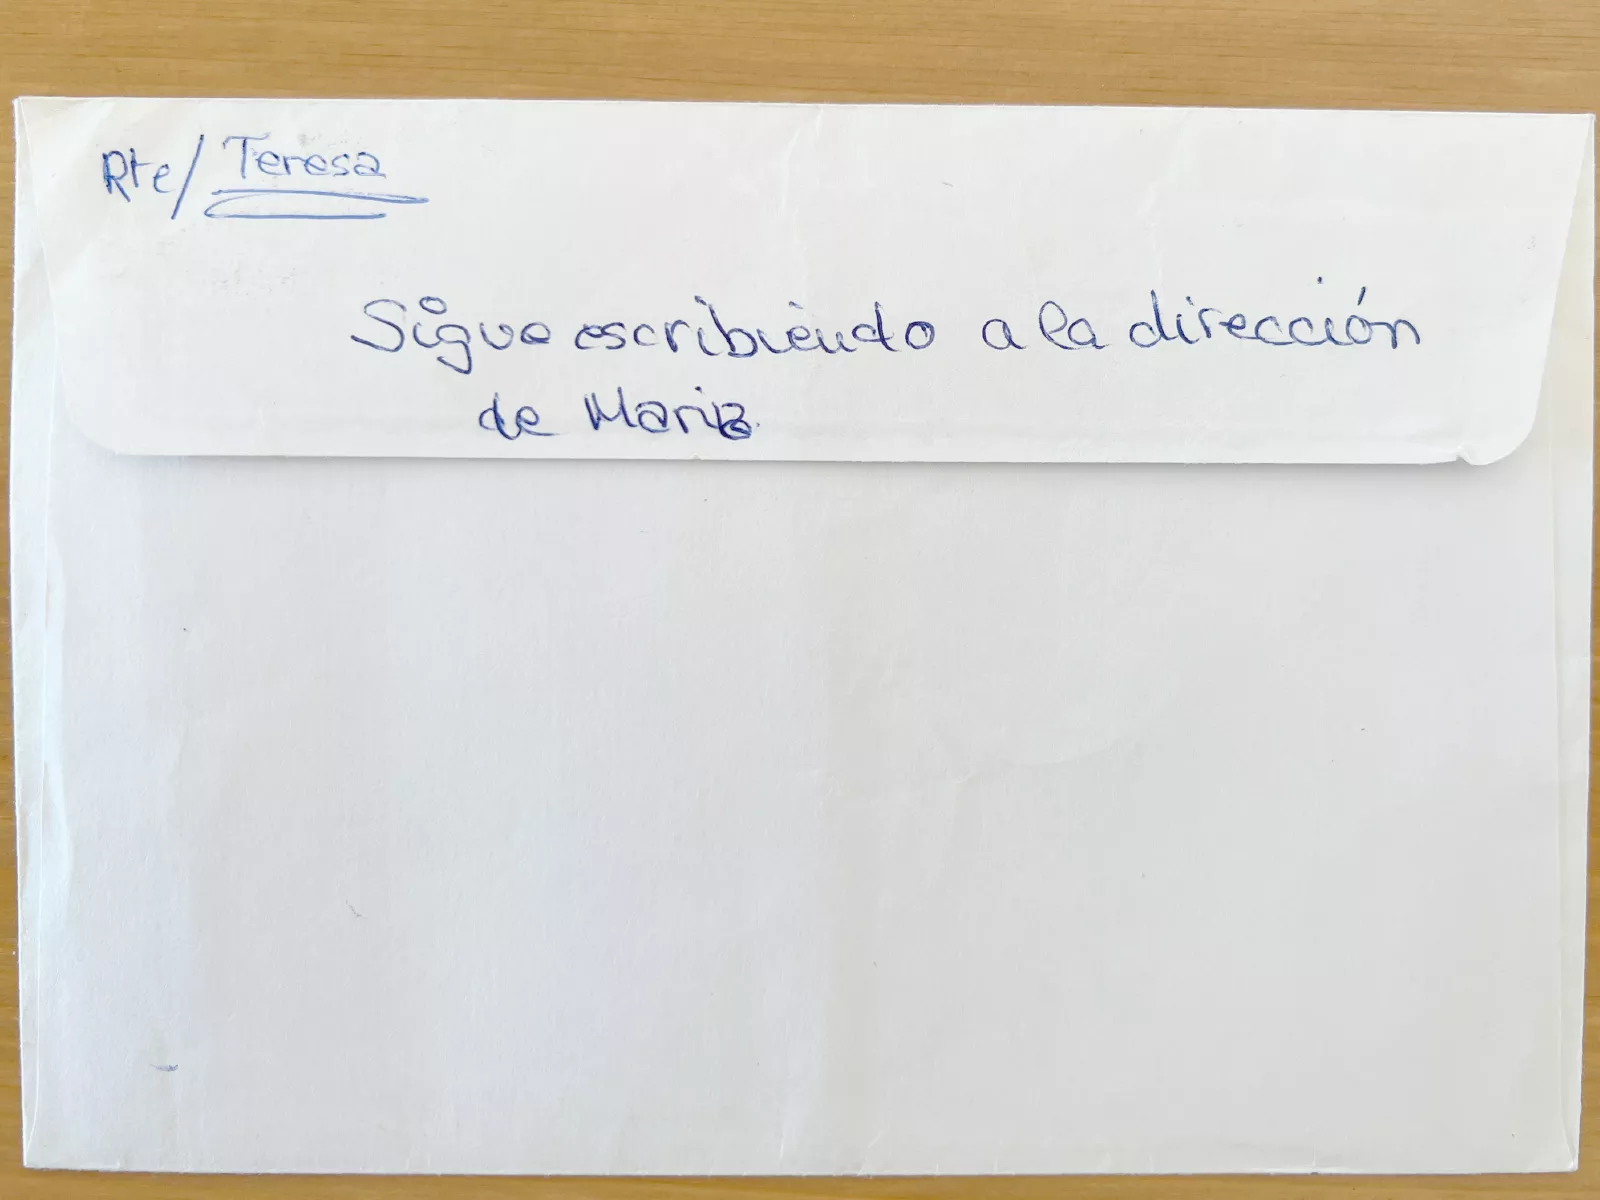 Rte/ Teresa
Sigue escribiendo a la dirección
de Maria.